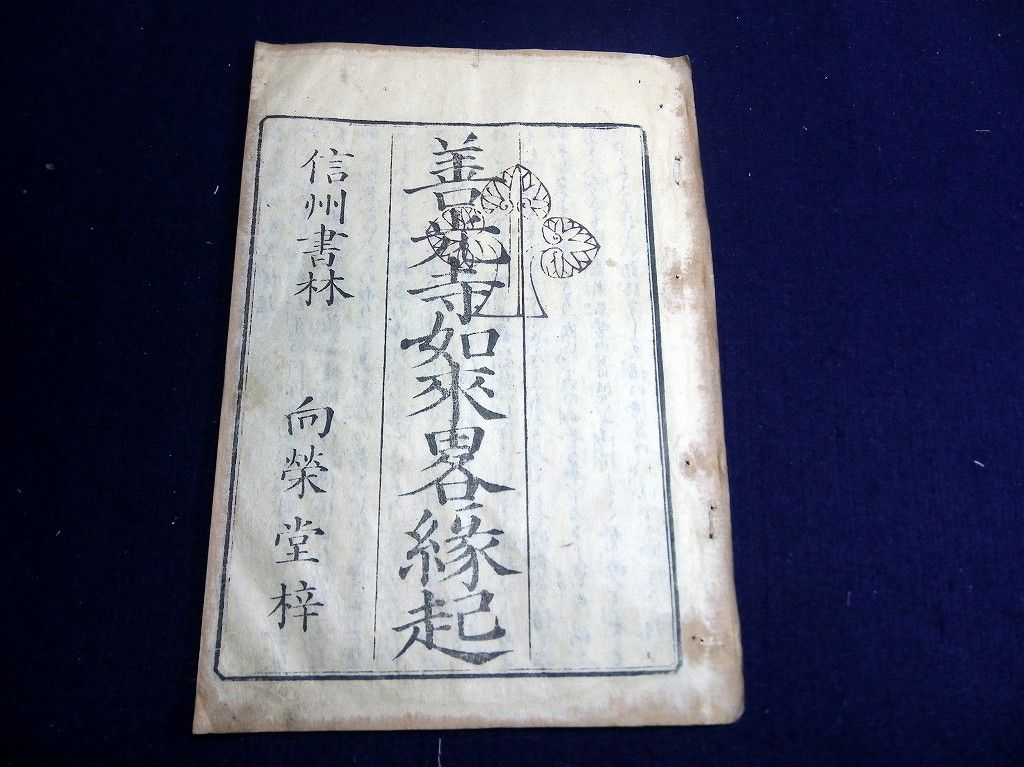 善光寺如來畧緣起
信州書林　向榮堂梓